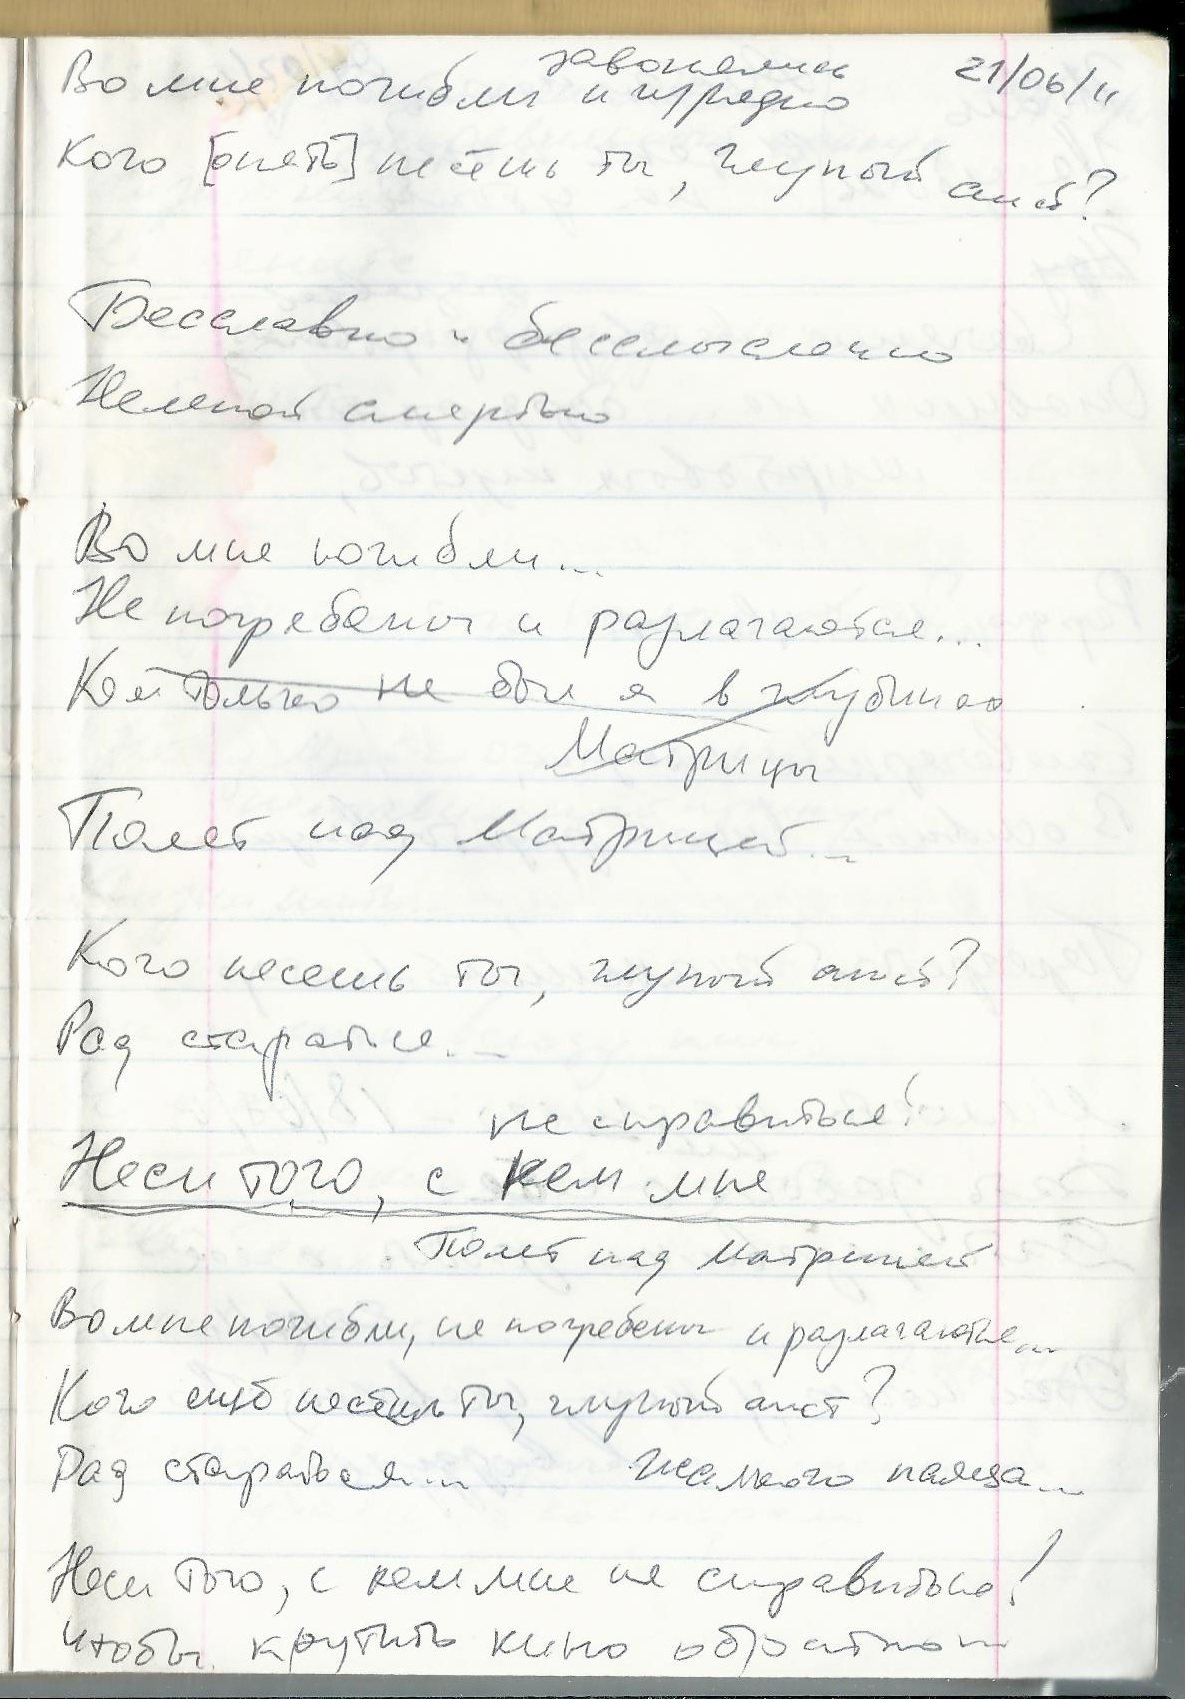 завонялись 21/06/11
Во мне погибли и изрядно
Кого [опять] несёшь ты, глупый аист?
Бесславно и бессмысленно
Нелепой смертью
Во мне погибли...
Не погребены и разлагаются...
Кем только не был я в глубинах
Матрицы
Полет над Матрицей...
Кого несешь ты, глупый аист?
Рад стараться...
не справиться!
Неси того, с кем мне
Полет над Матрицей
Во мне погибли, не погребены и разлагаются...
Кого ещё несешь ты, глупый аист?
Рад стараться... жалкого паяца...
Неси того, с кем мне не справиться!
Чтобы крутить кино обратно